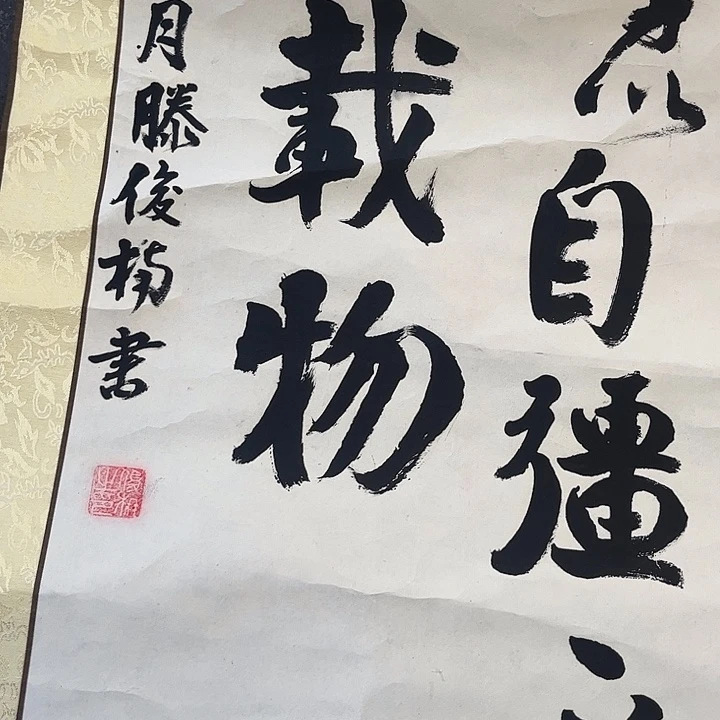 自彊
載物
月滕俊楠書